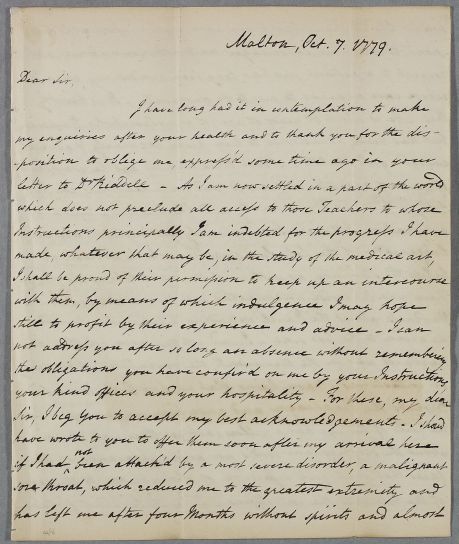 Malton, Oct. 7. 1779.
Dear Sir,
I have long had it in contemplation to make
my enquiries after your health and to thank you for the dis-
-position to oblege me express'd some time ago in your
letter to Dr Riddell - As I am now settled in a part of the world
which does not preclude all access to those Teachers to whose
Instructions principally I am indebted for the progress I have
made, whatever that may be, in the study of the medical art,
I shall be proud of their permission to keep up an intercourse
with them, by means of which indulgence I may hope
still to profit by their experience and advice - I can
not address you after so long an absence without remembering
the obligations you have confer'd on me by your Instructions,
your kind offices and your hospitality - For these, my dear
Sir, I beg you to accept my best acknowledgements - I should
have wrote to you to offer them soon after my arrival here
if I had not been attach'd by a most severe disorder, a malignant
sore throat, which reduced me to the greatest extremity and
has left me after four Months without spirits and almost